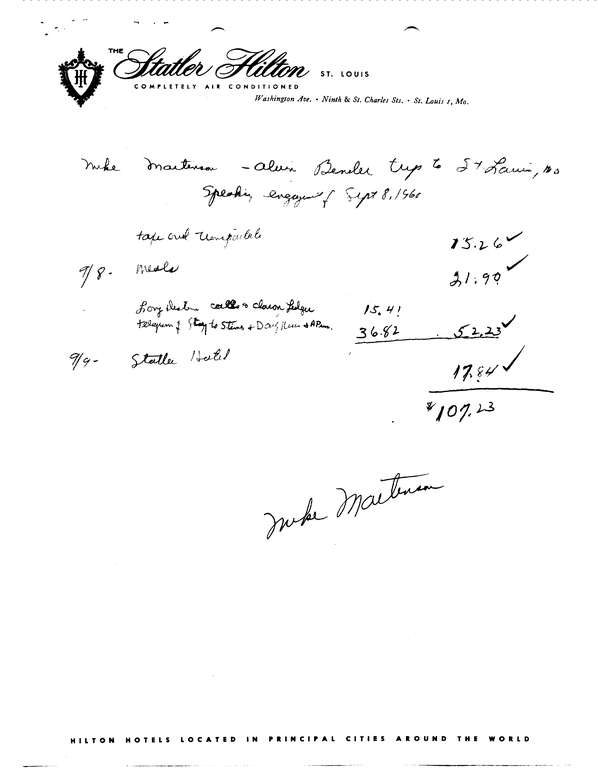 THE
Statler Hilton ST. LOUIS
COMPLETELY AIR CONDITIONED
Washington Ave. • Ninth & St. Charles Sts. • St. Louis 1, Mo.
Mike Martenson - Alvin Bender trip to St Louis, Mo
Speaking Sept 8, 1960
tape and 15.26 ✓
9/8 - Meals 21.90 ✓
Long calls 15.41
telegram Story to & & 36.82 52.23 ✓
9/9 - Statler Hotel 17.84 ✓
$107.23
Mike Martenson
HILTON HOTELS LOCATED IN PRINCIPAL CITIES AROUND THE WORLD